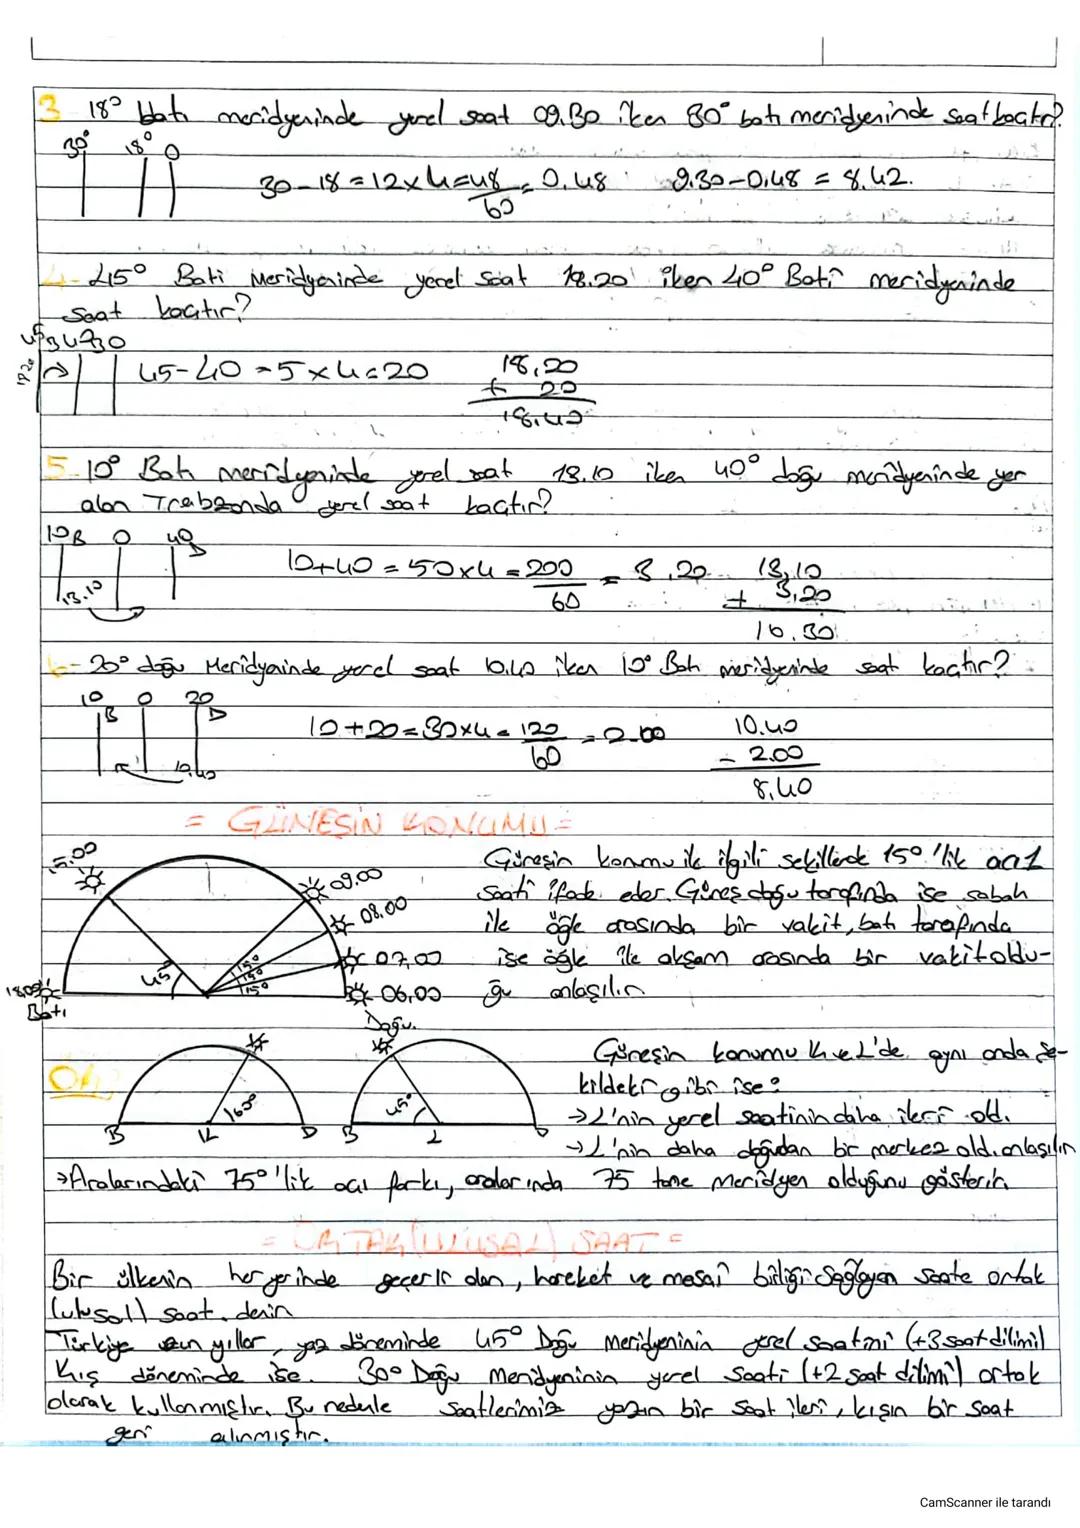 3 18° batı meridyeninde yerel saat 09.30 iken 30° batı meridyeninde saat kaçtır?
30° 18° 0
30-18=12x4=48/60=0.48 9.30-0.48 = 8.42.
4- 45° Batı Meridyeninde yerel saat 18.20 iken 40° Batı meridyeninde
saat kaçtır?
18.20
45-40=5x4=20
18,20
+ 20
18,40
5-10° Batı meridyeninde yerel saat 13.10 iken 40° doğu meridyeninde yer
alan Trabzonda yerel saat kaçtır?
10B 0 40D
13.10
10+40=50x4=200/60=3,20
13,10
+ 3,20
16.30
6-20° doğu Meridyeninde yerel saat 10.40 iken 10° Batı meridyeninde saat kaçtır?
10B 0 20D
10.40
10+20=30x4=120/60=2.00
10.40
- 2.00
8,40
= GÜNEŞİN KONUMU =
Güneşin konumu ile ilgili şekillerde 15°'lik açı 1
saati ifade eder. Güneş doğu tarafında ise sabah
ile öğle arasında bir vakit, batı tarafında
ise öğle ile akşam arasında bir vakit oldu-
ğu anlaşılır.
15.00
09.00
08.00
07,00
06,00
18,00
45°
15°
15°
15°
Batı
Doğu.
Güneşin konumu K ve L'de aynı anda şe-
kildeki gibi ise:
→L'nin yerel saatinin daha ileri old.
→L'nin daha doğudan bir merkez old. anlaşılır
B K D
B L
45°
→Aralarındaki 75°'lik açı farkı, aralarında 75 tane Meridyen olduğunu gösterir.
= ORTAK (ULUSAL) SAAT =
Bir ülkenin her yerinde geçerli olan, hareket ve mesai birliği sağlayan saate ortak
(ulusal) saat denir
Türkiye uzun yıllar, yaz döneminde 45° Doğu Meridyeninin yerel saatini (+3 saat dilimi)
Kış döneminde ise 30° Doğu Meridyeninin yerel saati (+2 saat dilimi) ortak
olarak kullanmıştır. Bu nedenle saatlerimiz yazın bir saat ileri, kışın bir saat
geri alınmıştır.
CamScanner ile tarandı